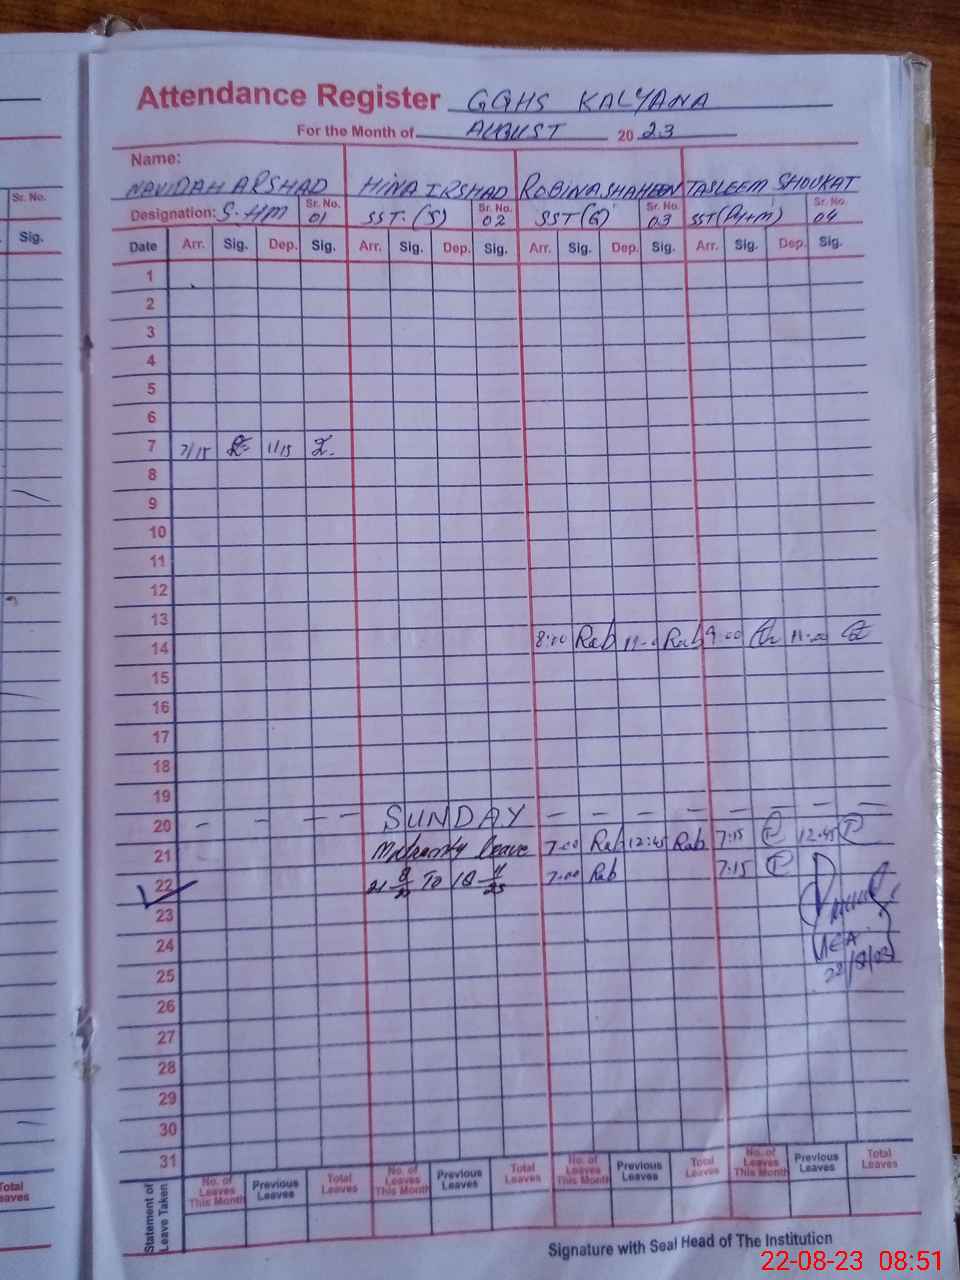 Attendance Register GGHS KALYANA
For the Month of AUGUST 20 23
Name:
NAVIDAH ARSHAD HINA IRSHAD ROBINA SHAHEEN TASLEEM SHOUKAT
Sr. No.
Designation: S.HM Sr. No. 01 SST.(S) Sr. No. 02 SST(G) Sr. No. 03 Sr. No. 04
Sig.
Date Arr. Sig. Dep. Sig. Arr. Sig. Dep. Sig. Arr. Sig. Dep. Sig. Arr. Sig. Dep. Sig.
1
2
3
4
5
6
7 7/15 11/15
8
9
10
11
12
13
14 8:00 Rab 11-0 Rab 9:00 11:00
15
16
17
18
19
20 - - - - SUNDAY - - - - - - - -
21 Maternity leave 7:00 Rab 12:45 Rab 7:15 12:45
22 To 7:00 Rab 7:15
23
24 MEA
25
26
27
28
29
30
31
Statement of Leave Taken
No. of Leaves This Month Previous Leaves Total Leaves No. of Leaves This Month Previous Leaves Total Leaves No. of Leaves This Month Previous Leaves Total Leaves No. of Leaves This Month Previous Leaves Total Leaves
Signature with Seal Head of The Institution
22-08-23 08:51